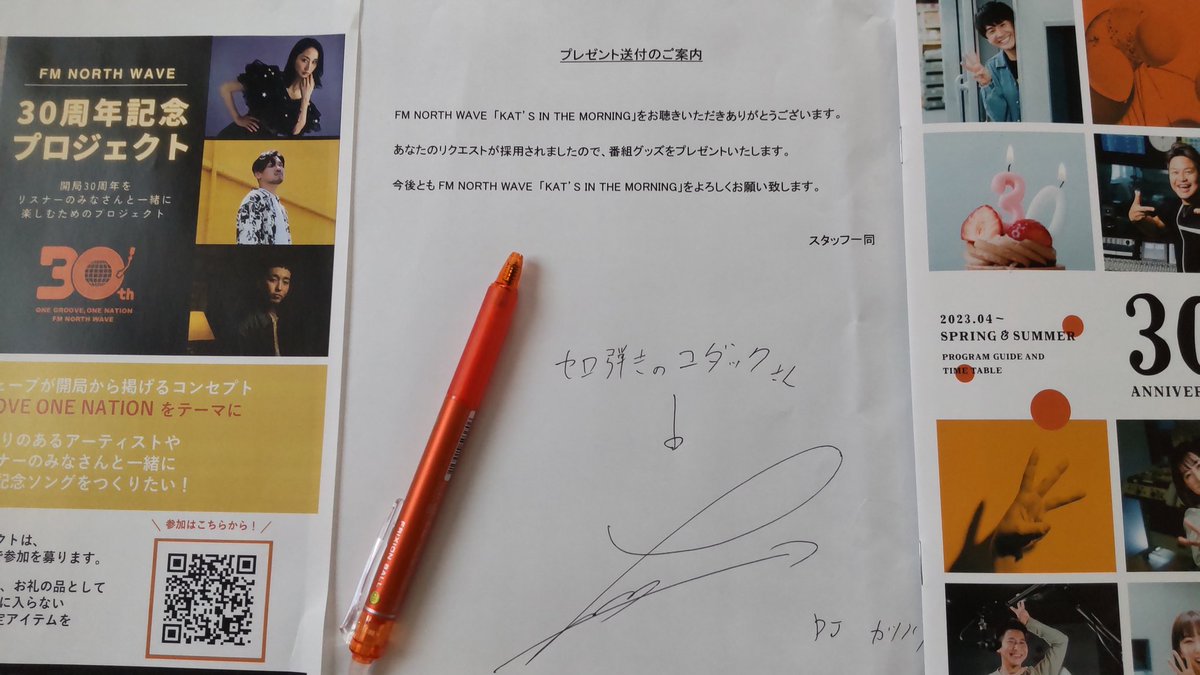 FM NORTH WAVE
30周年記念
プロジェクト
開局30周年を
リスナーのみなさんと一緒に
楽しむためのプロジェクト
30th
ONE GROOVE, ONE NATION
FM NORTH WAVE
ェーブが開局から掲げるコンセプト
OVE ONE NATION をテーマに
りのあるアーティストや
ナーのみなさんと一緒に
記念ソングをつくりたい！
＼ 参加はこちらから！ ／
クトは、
で参加を募ります。
、お礼の品として
に入らない
定アイテムを
プレゼント送付のご案内
FM NORTH WAVE 「KAT'S IN THE MORNING」をお聴きいただきありがとうございます。
あなたのリクエストが採用されましたので、番組グッズをプレゼントいたします。
今後とも FM NORTH WAVE 「KAT'S IN THE MORNING」をよろしくお願い致します。
スタッフ一同
セロ弾きのユダックさん
DJ カツノリ
FRIXION BALL
30
2023.04~
SPRING & SUMMER
PROGRAM GUIDE AND
TIME TABLE
30
ANNIVER